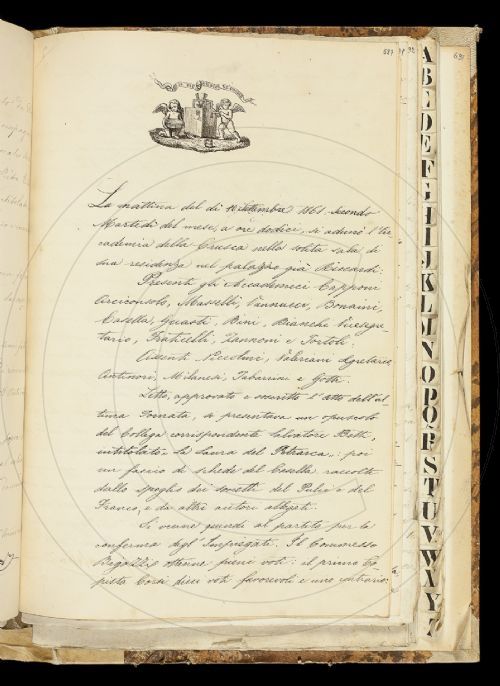 587
92
631
La mattina del dì 10 Settembre 1861. secondo
Martedì del mese, a ore dodici, si adunò l'Ac
cademia della Crusca nella solita sala di
sua residenza nel palazzo già Riccardi.
Presenti gli Accademici Capponi
Arciconsolo, Masselli, Vannucci, Bonaini,
Casella, Guasti, Bini, Bianchi Vicesegre
tario, Fraticelli, Zannoni e Tortoli.
Assenti Niccolini, Valeriani Segretario,
Antinori, Milanesi, Tabarrini e Gotti.
Letto, approvato e soscritto l'atto dell'ul
tima Tornata, si presentava un opuscolo
del Collega corrispondente Salvatore Betti,
intitolato: La Laura del Petrarca; poi
un fascio di schede del Casella raccolte
dallo spoglio dei sonetti del Pulci e del
Franco, e da altri autori allegati.
Si venne quindi al partito per la
conferma degl'Impiegati. Il Commesso
Rigozzi ottenne pieni voti: il primo Co
pista Corsi dieci voti favorevoli e uno contrario:
A
B
C
D
E
F
G
H
I
J
K
L
M
N
O
P
Q
R
S
T
U
V
W
X
Y
Z